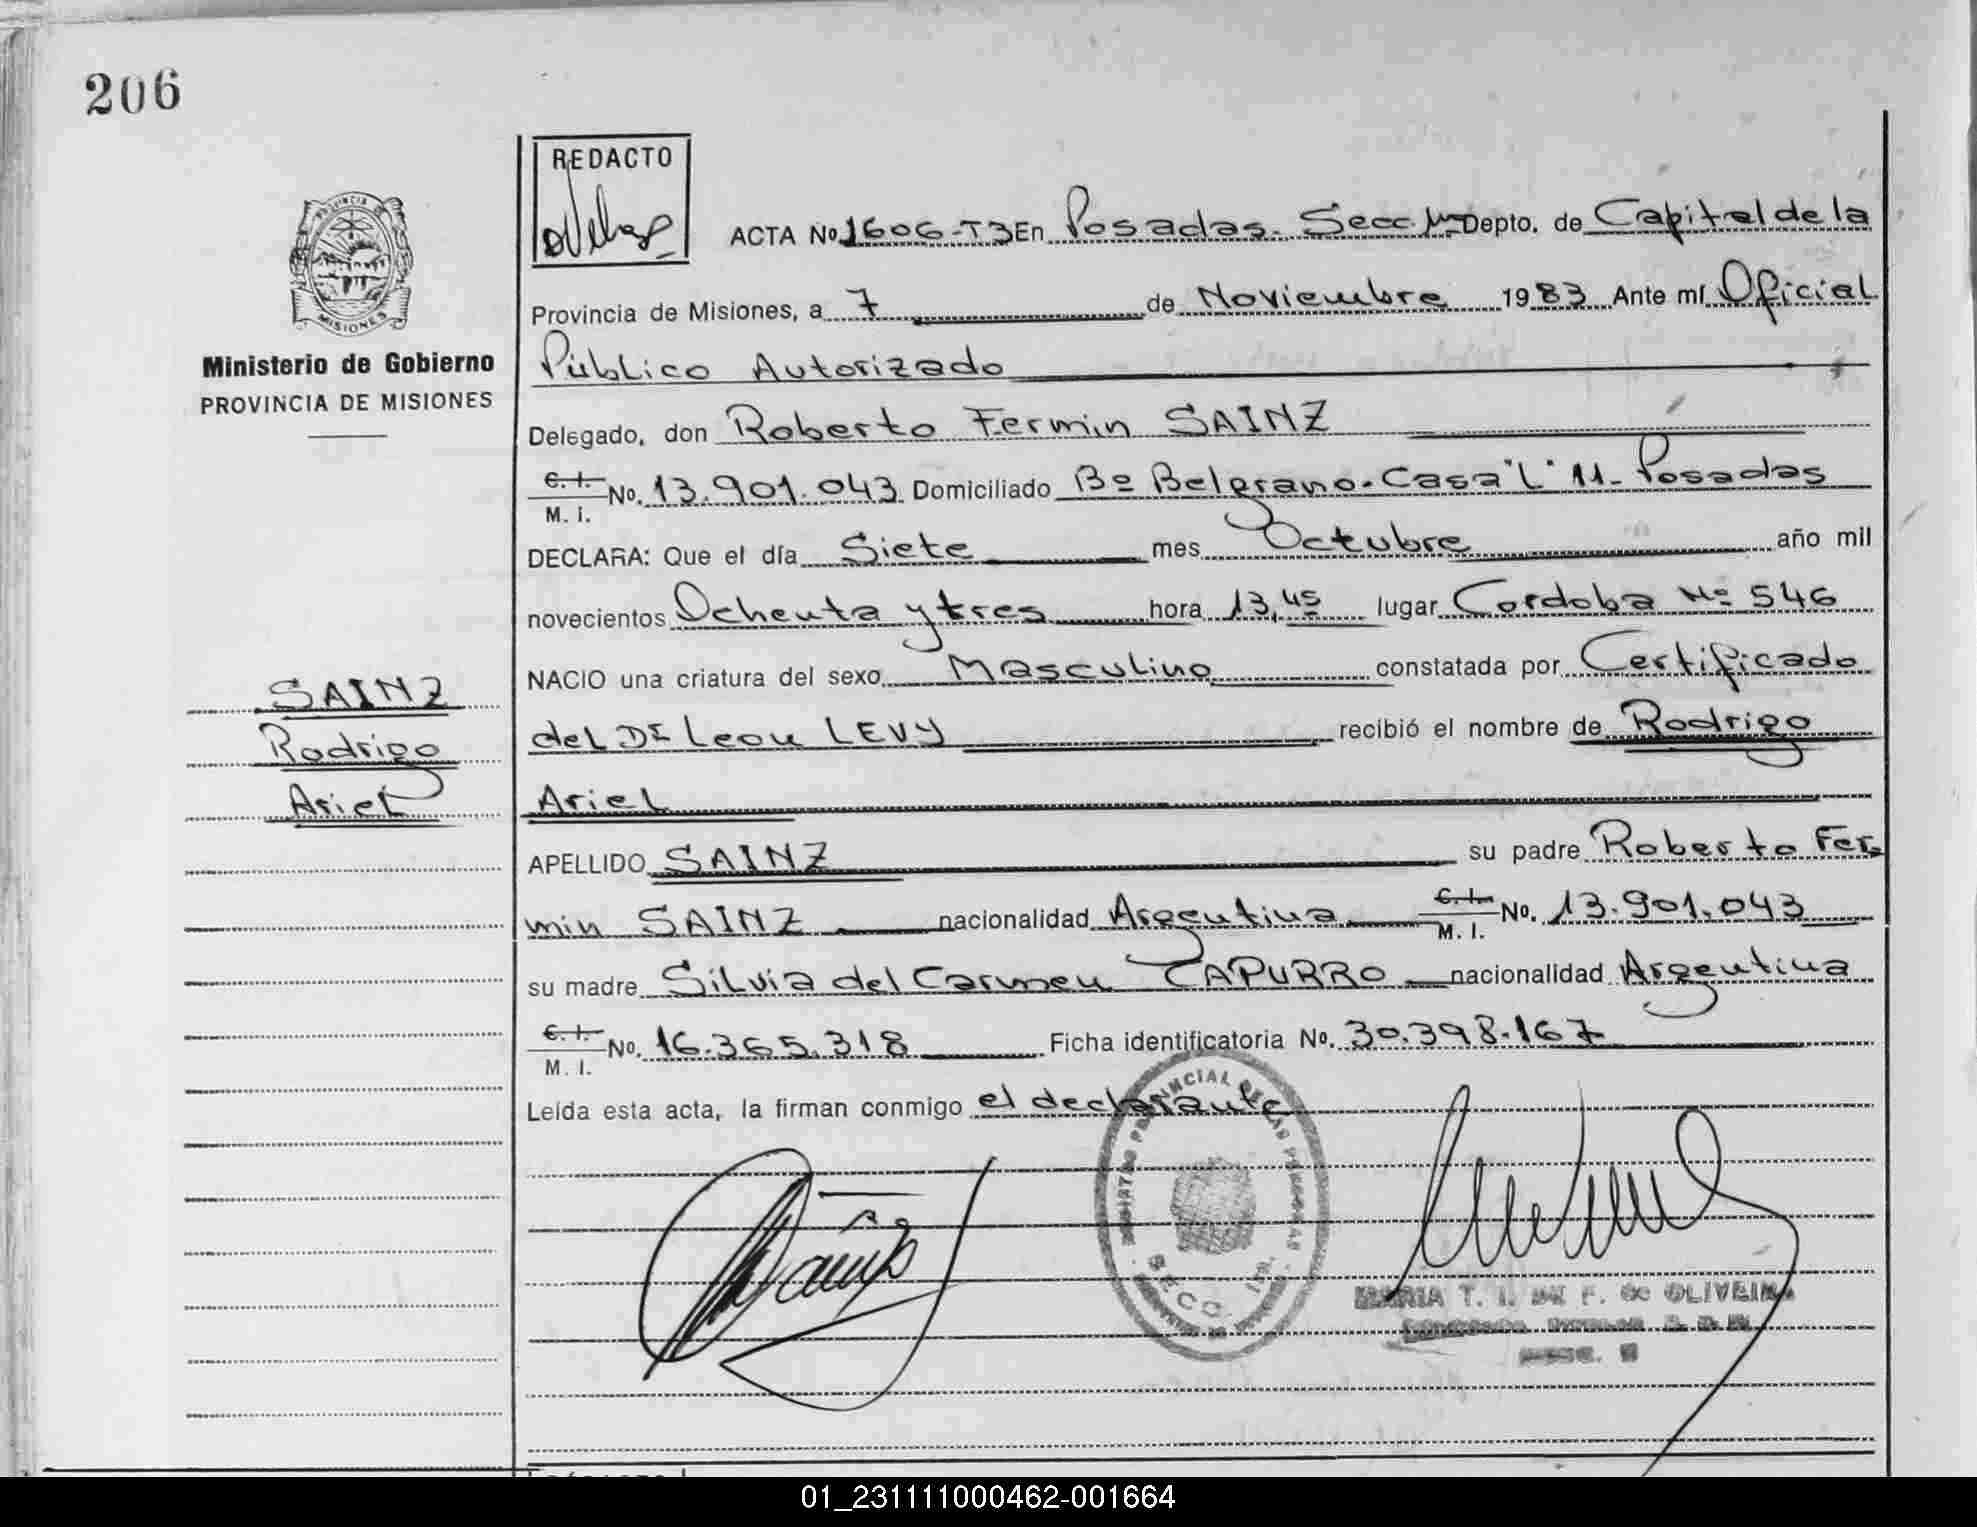 206
REDACTO
PROVINCIA DE
MISIONES
Ministerio de Gobierno
PROVINCIA DE MISIONES
ACTA No 1606-T3 En Posadas. Secc. 1ra Depto. de Capital de la
Provincia de Misiones, a 7 de Noviembre 1983 Ante mí Oficial
Público Autorizado
Delegado, don Roberto Fermin SAINZ
C. I. No. 13.901.043 Domiciliado Bº Belgrano. Casa "L" 11- Posadas
M. I.
DECLARA: Que el día Siete mes Octubre año mil
novecientos Ochenta y tres hora 13,45 lugar Cordoba Nº 546
NACIO una criatura del sexo Masculino constatada por Certificado
del Dr Leon LEVY recibió el nombre de Rodrigo
Ariel
SAINZ
Rodrigo
Ariel
APELLIDO SAINZ su padre Roberto Fer-
min SAINZ nacionalidad Argentina C. I. No. 13.901.043
M. I.
su madre Silvia del Carmen CAPURRO nacionalidad Argentina
C. I. No. 16.365.318 Ficha identificatoria No. 30.398.167
M. I.
Leída esta acta, la firman conmigo el declarante
REGISTRO PROVINCIAL DE LAS PERSONAS
SECC. 1ra.
MARIA T. I. DE F. de OLIVEIRA
01_231111000462-001664